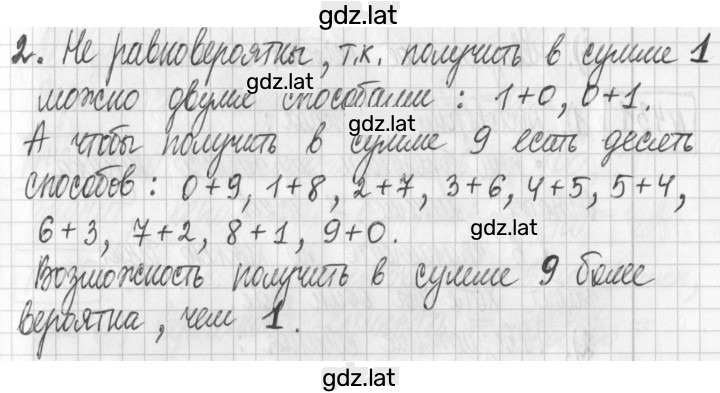 gdz.lat
2. Не равновероятны, т.к. получить в сумме 1
gdz.lat
можно двумя способами : 1+0, 0+1.
gdz.lat
А чтобы получить в сумме 9 есть десять
способов : 0+9, 1+8, 2+7, 3+6, 4+5, 5+4,
6+3, 7+2, 8+1, 9+0.
gdz.lat
Возможность получить в сумме 9 более
вероятна, чем 1.
gdz.lat